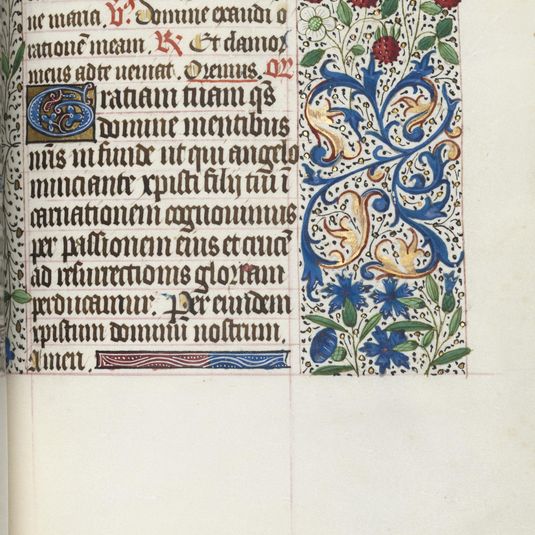 ne maria. V. Domine exaudi o
rationē meam. R. Et clamor
meus ad te ueniat. Oremus. Or
Gratiam tuam qs
domine mentibus
nr̄is infunde ut qui angelo
nunciante xpisti filij tui ī
carnationem cognouimus
per passionem eius et crucē
ad resurrectionis gloriam
perducamur. Per eundem
xpistum dominū nostrum.
Amen.